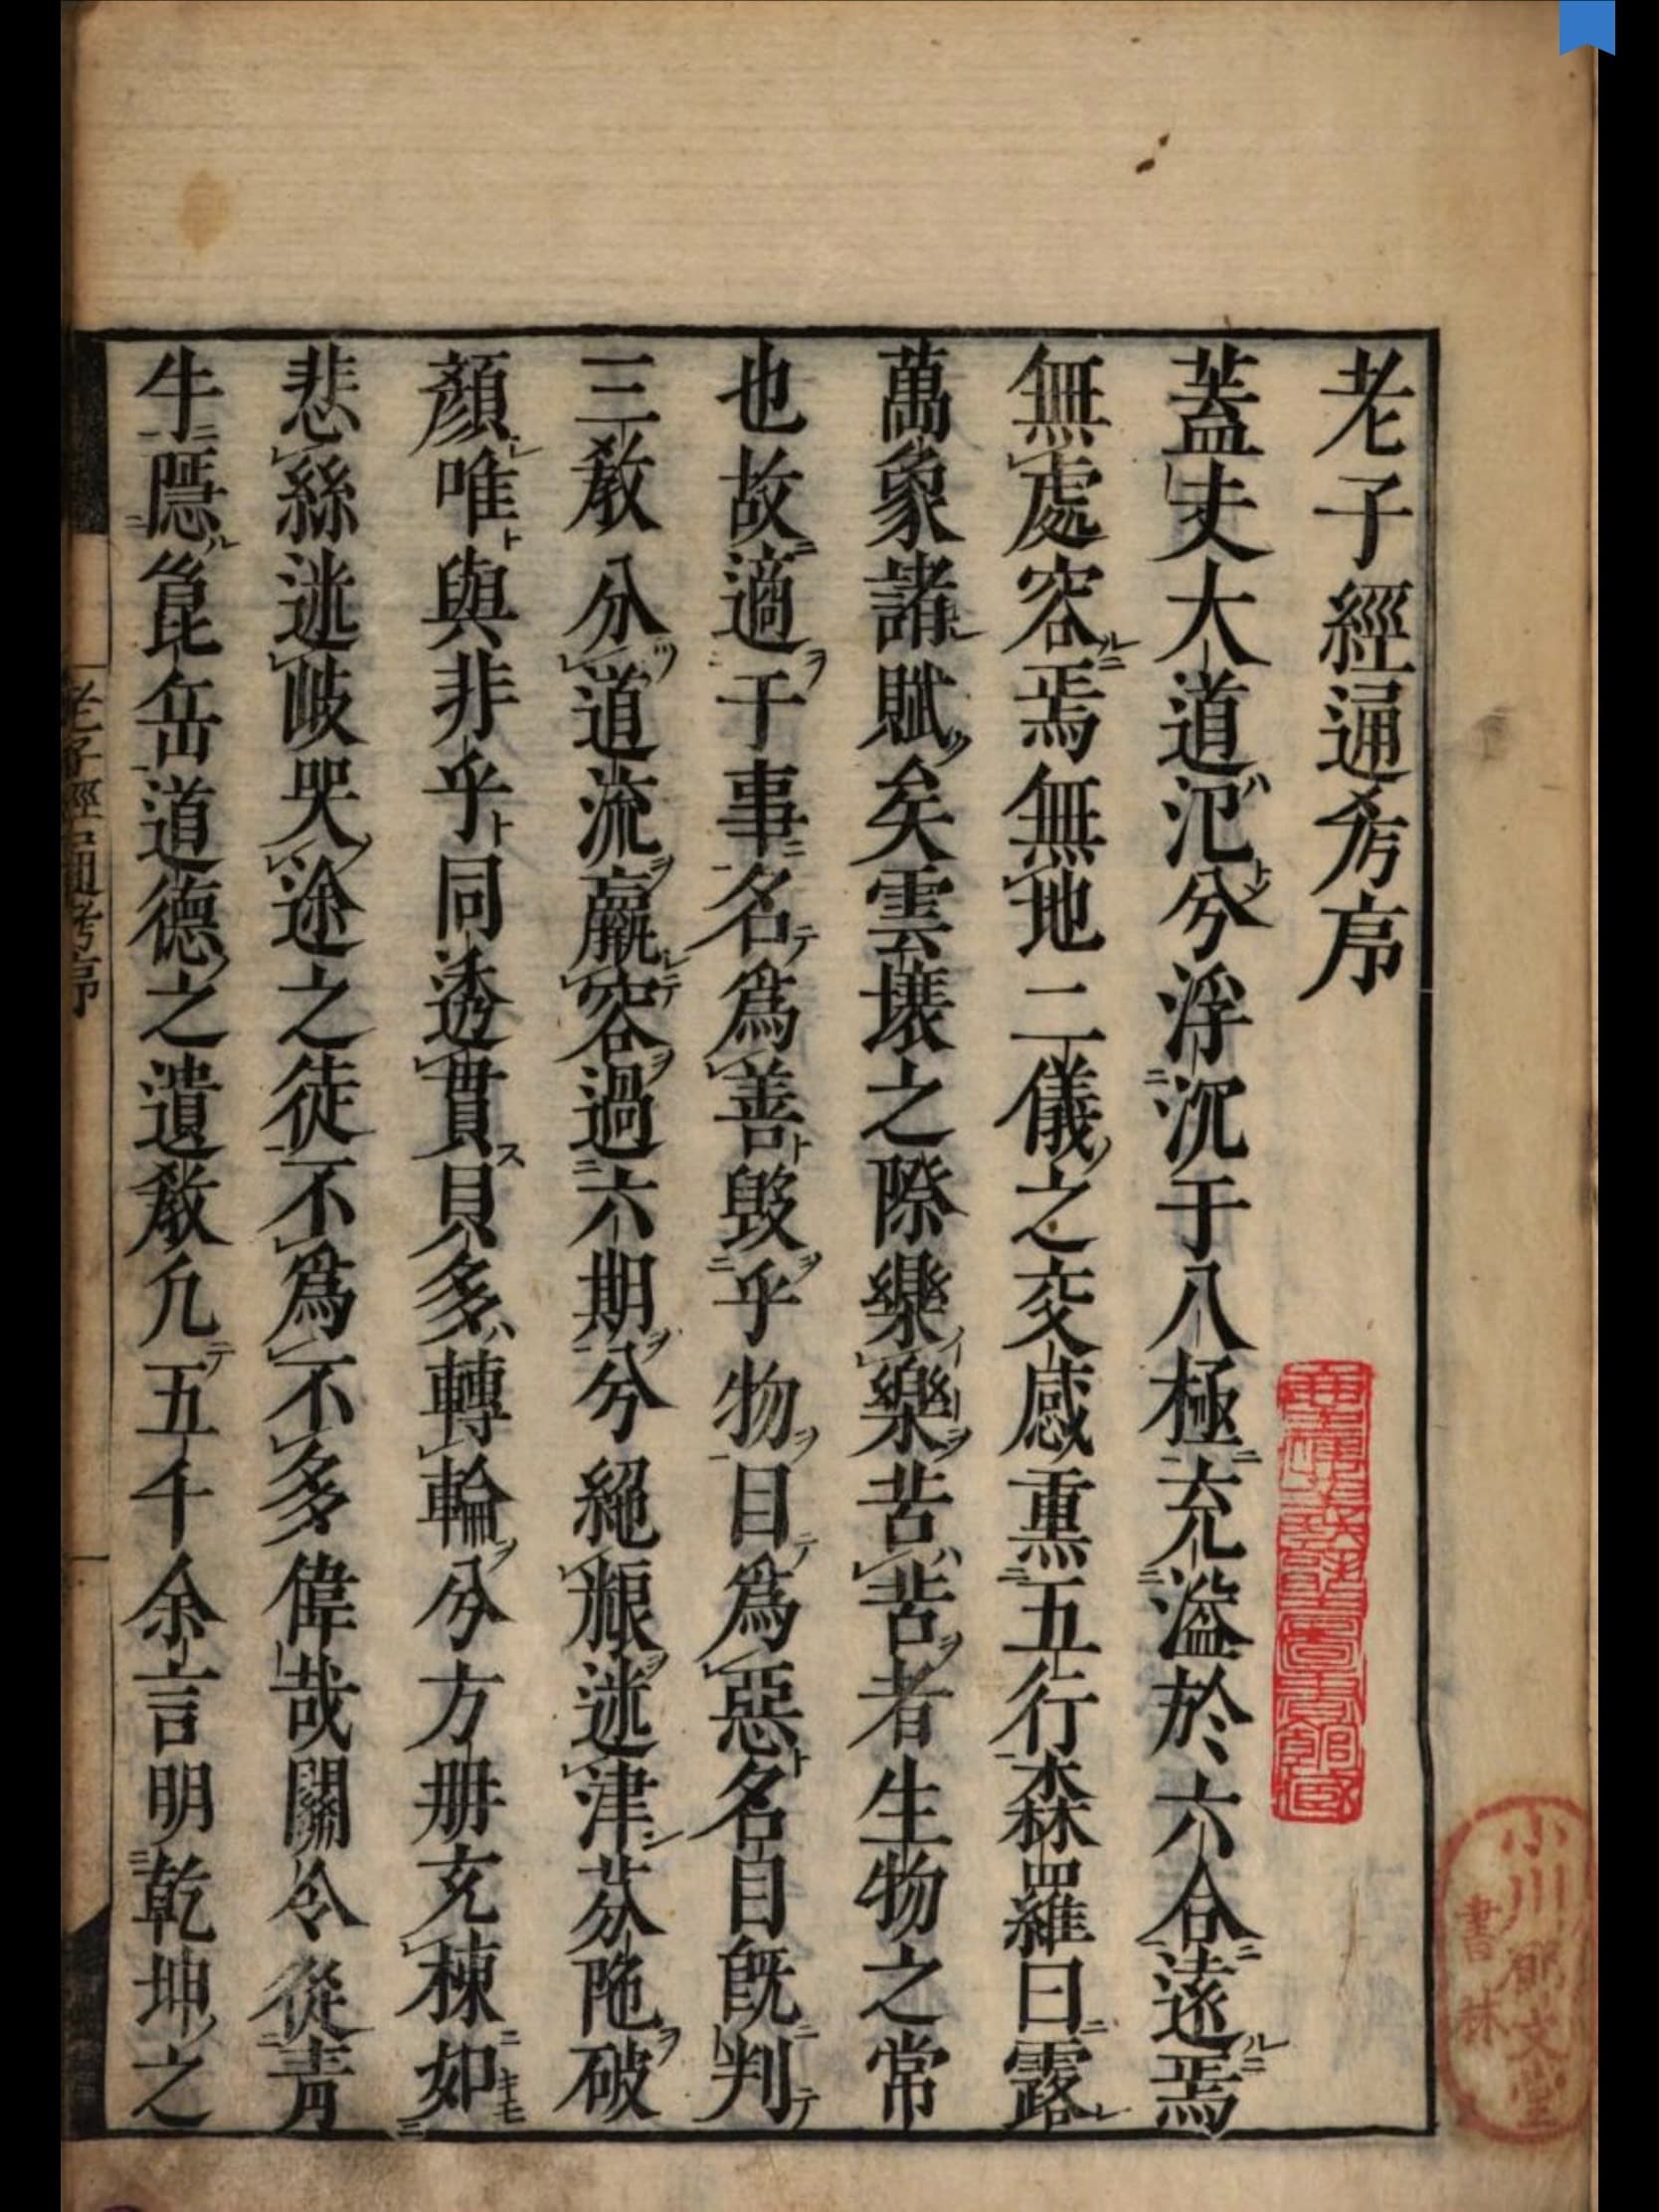 老子經通考序
蓋夫大道氾兮浮沉于八極充溢於六合遠焉
無處容焉無地二儀之交感熏五行森羅曰露
萬象諸賦矣雲壤之際樂樂苦苦者生物之常
也故適于事名爲善毀乎物目爲惡名自旣判
三教分道流羸容過六期兮繩糧迷津茶陁破
顏唯與非乎同透貫貝多轉輪兮方册充棟如
悲絲迷岐哭途之徒不爲不多偉哉關令從靑
牛隱崑岳道德之遺教凡五千余言明乾坤之
老子經通考序
一
小川彫文堂
書林